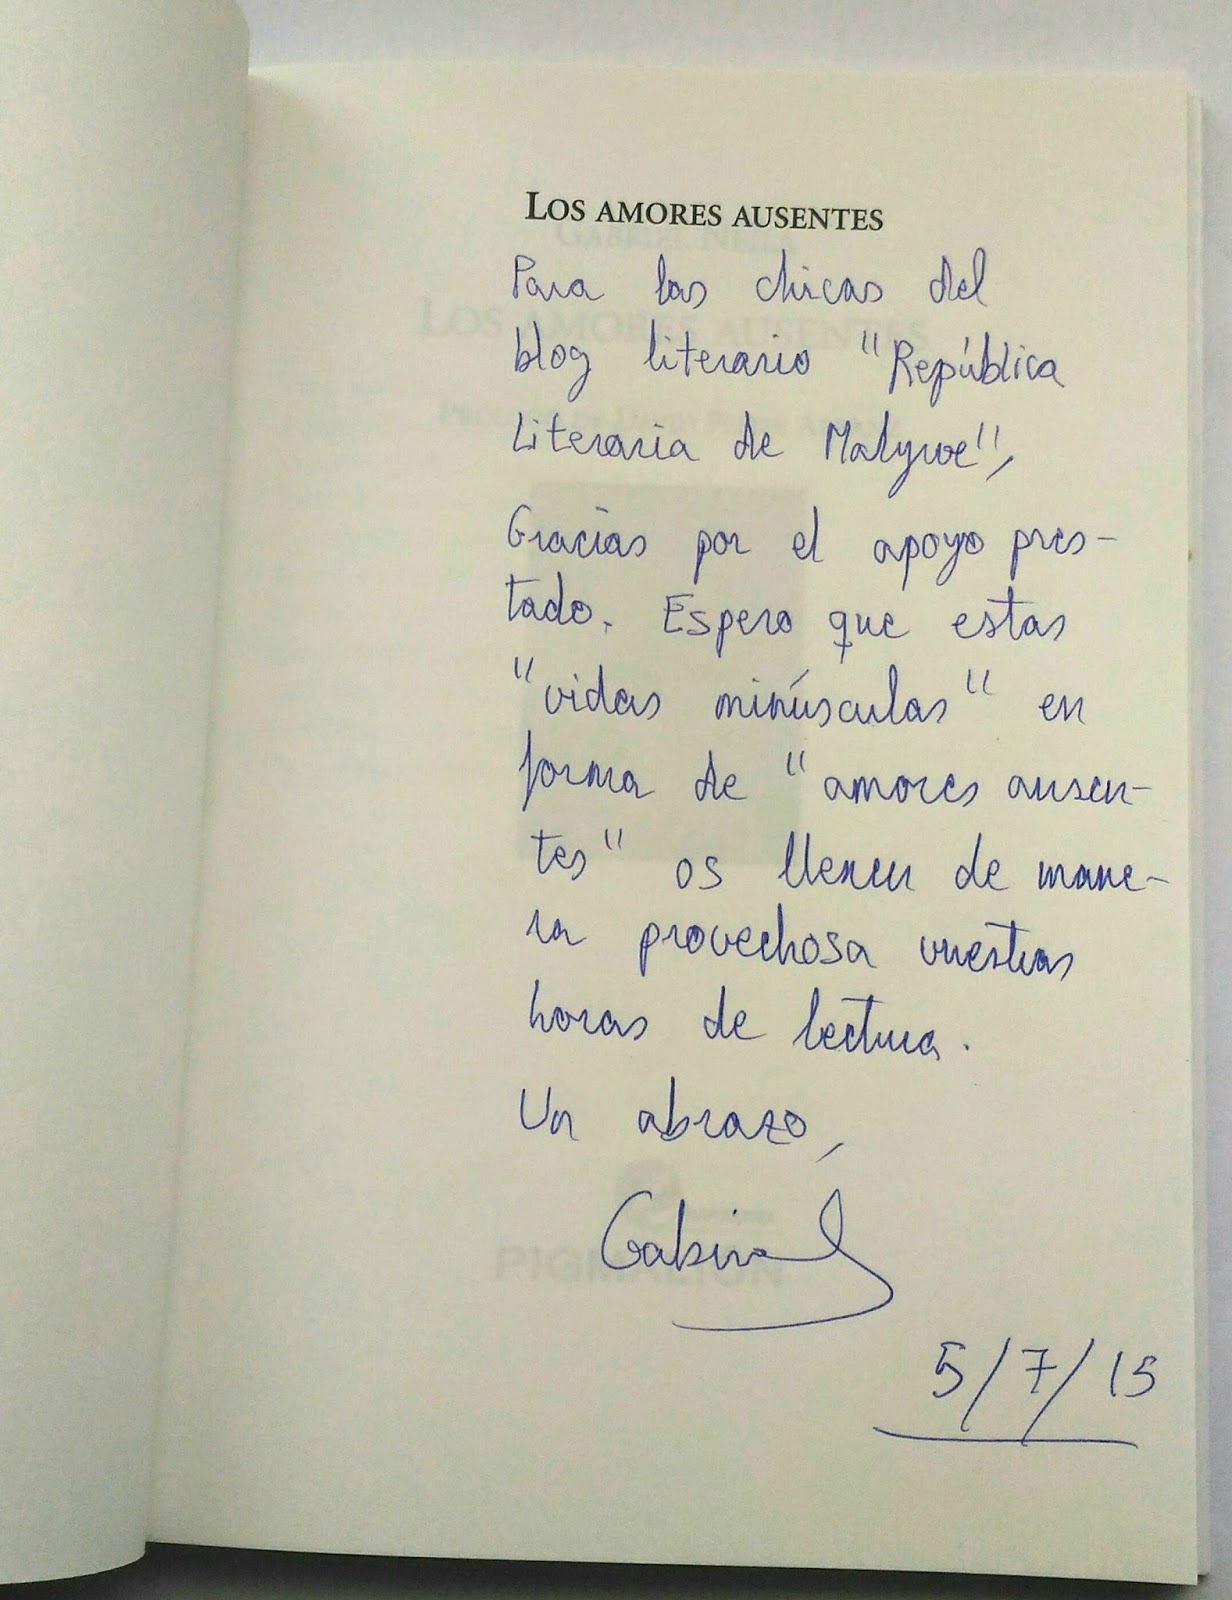 LOS AMORES AUSENTES
Para las chicas del
blog literario "República
Literaria de Malyroe",
Gracias por el apoyo pres-
tado. Espero que estas
"vidas minúsculas" en
forma de "amores ausen-
tes" os llenen de mane-
ra provechosa vuestras
horas de lectura.
Un abrazo,
Gabriel
5/7/15
LOS AMORES AUSENTES
PIGMALIÓN